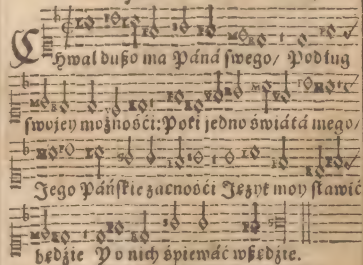 Chwal dußo ma Páná ſwego/ Podług
ſwojey możnośći: Poki jedno świátá mego/
Jego Páńſkie zacnośći Język moy ſławić
będźie Y o nich śpiewáć wßędźie.